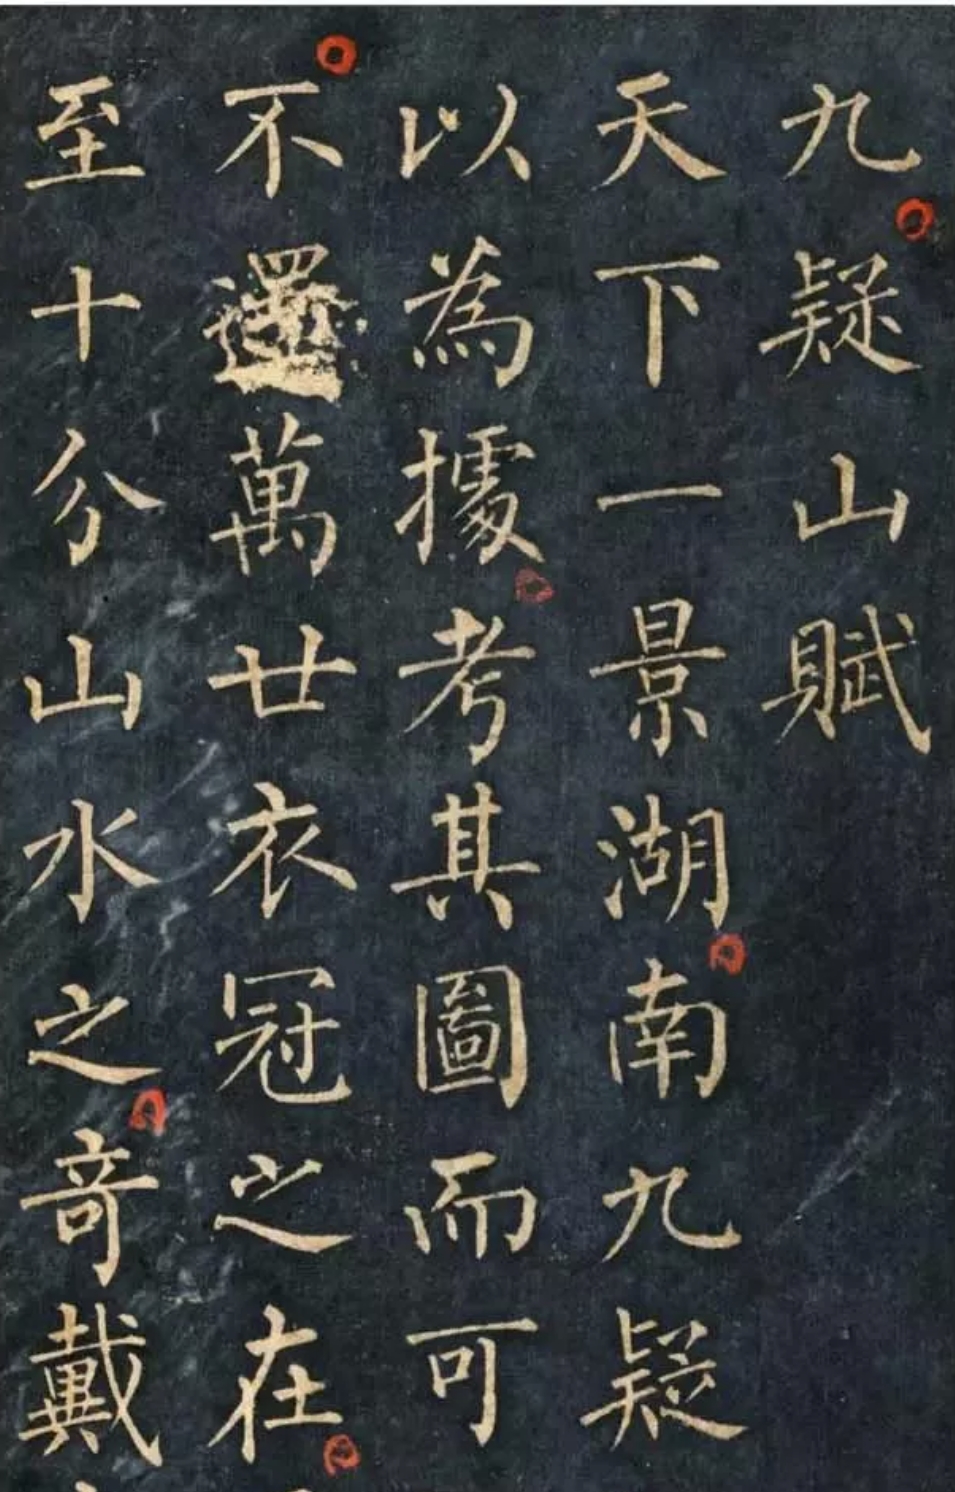 九疑山賦
天下一景湖南九疑
以為據考其圖而可
不還萬廿衣冠之在
至十分山水之奇戴